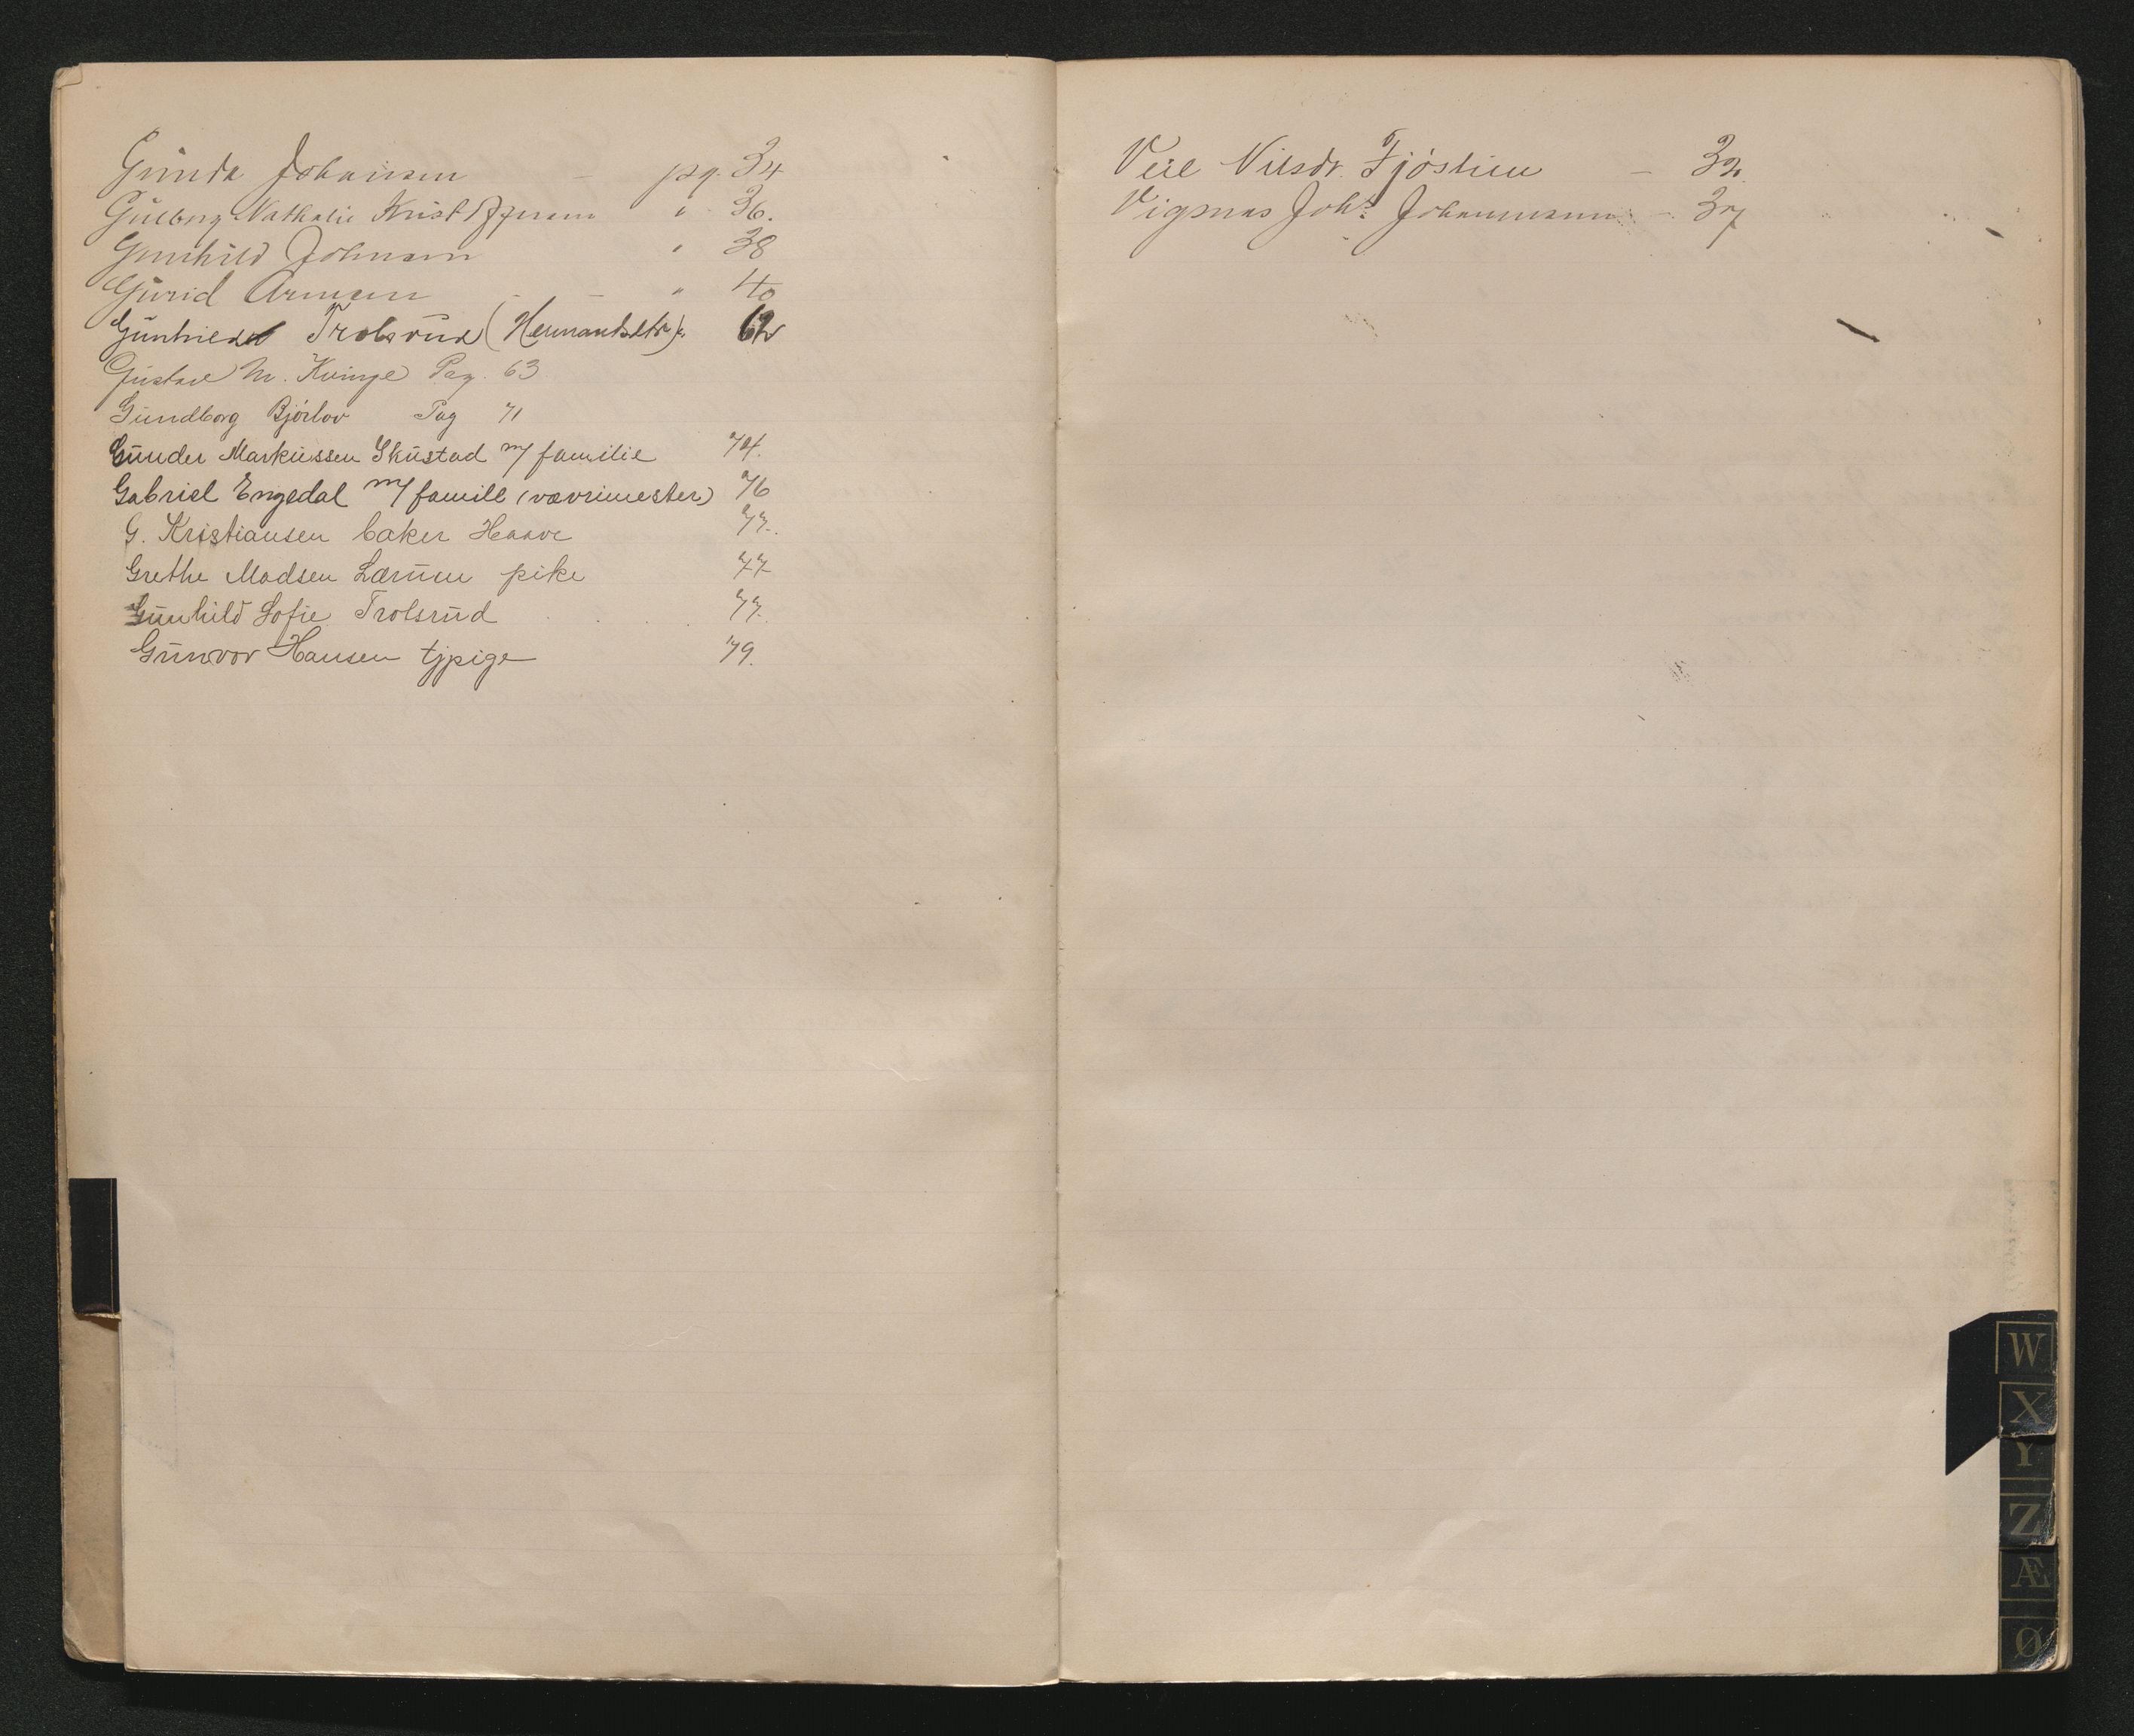 Gunda Johansen — pg. 34
Gulborg Nathalie Krist " 36.
Gunhild Johnsen " 38
Gurid Armsen — — " 40
Gunhild Trolsrud (Hermandsdtr). 62
Gustav M. Kvinge Pag. 63
Gundborg Bjórlov Pag 71
Gunder Markussen Skustad m/ familie 74.
Gabriel Engedal m/ famile (vævrimester) 76
G. Kristiansen baker Haave 77.
Grethe Madsen Lærum pike 77
Gunhild Sofie Trolsrud 77.
Gunvor Hansen tjpige 79.
Nilsdr. Fjóslien — 32.
Vigsnas Johs Johannesen — 37
W
X
Y
Z
Æ
Ø